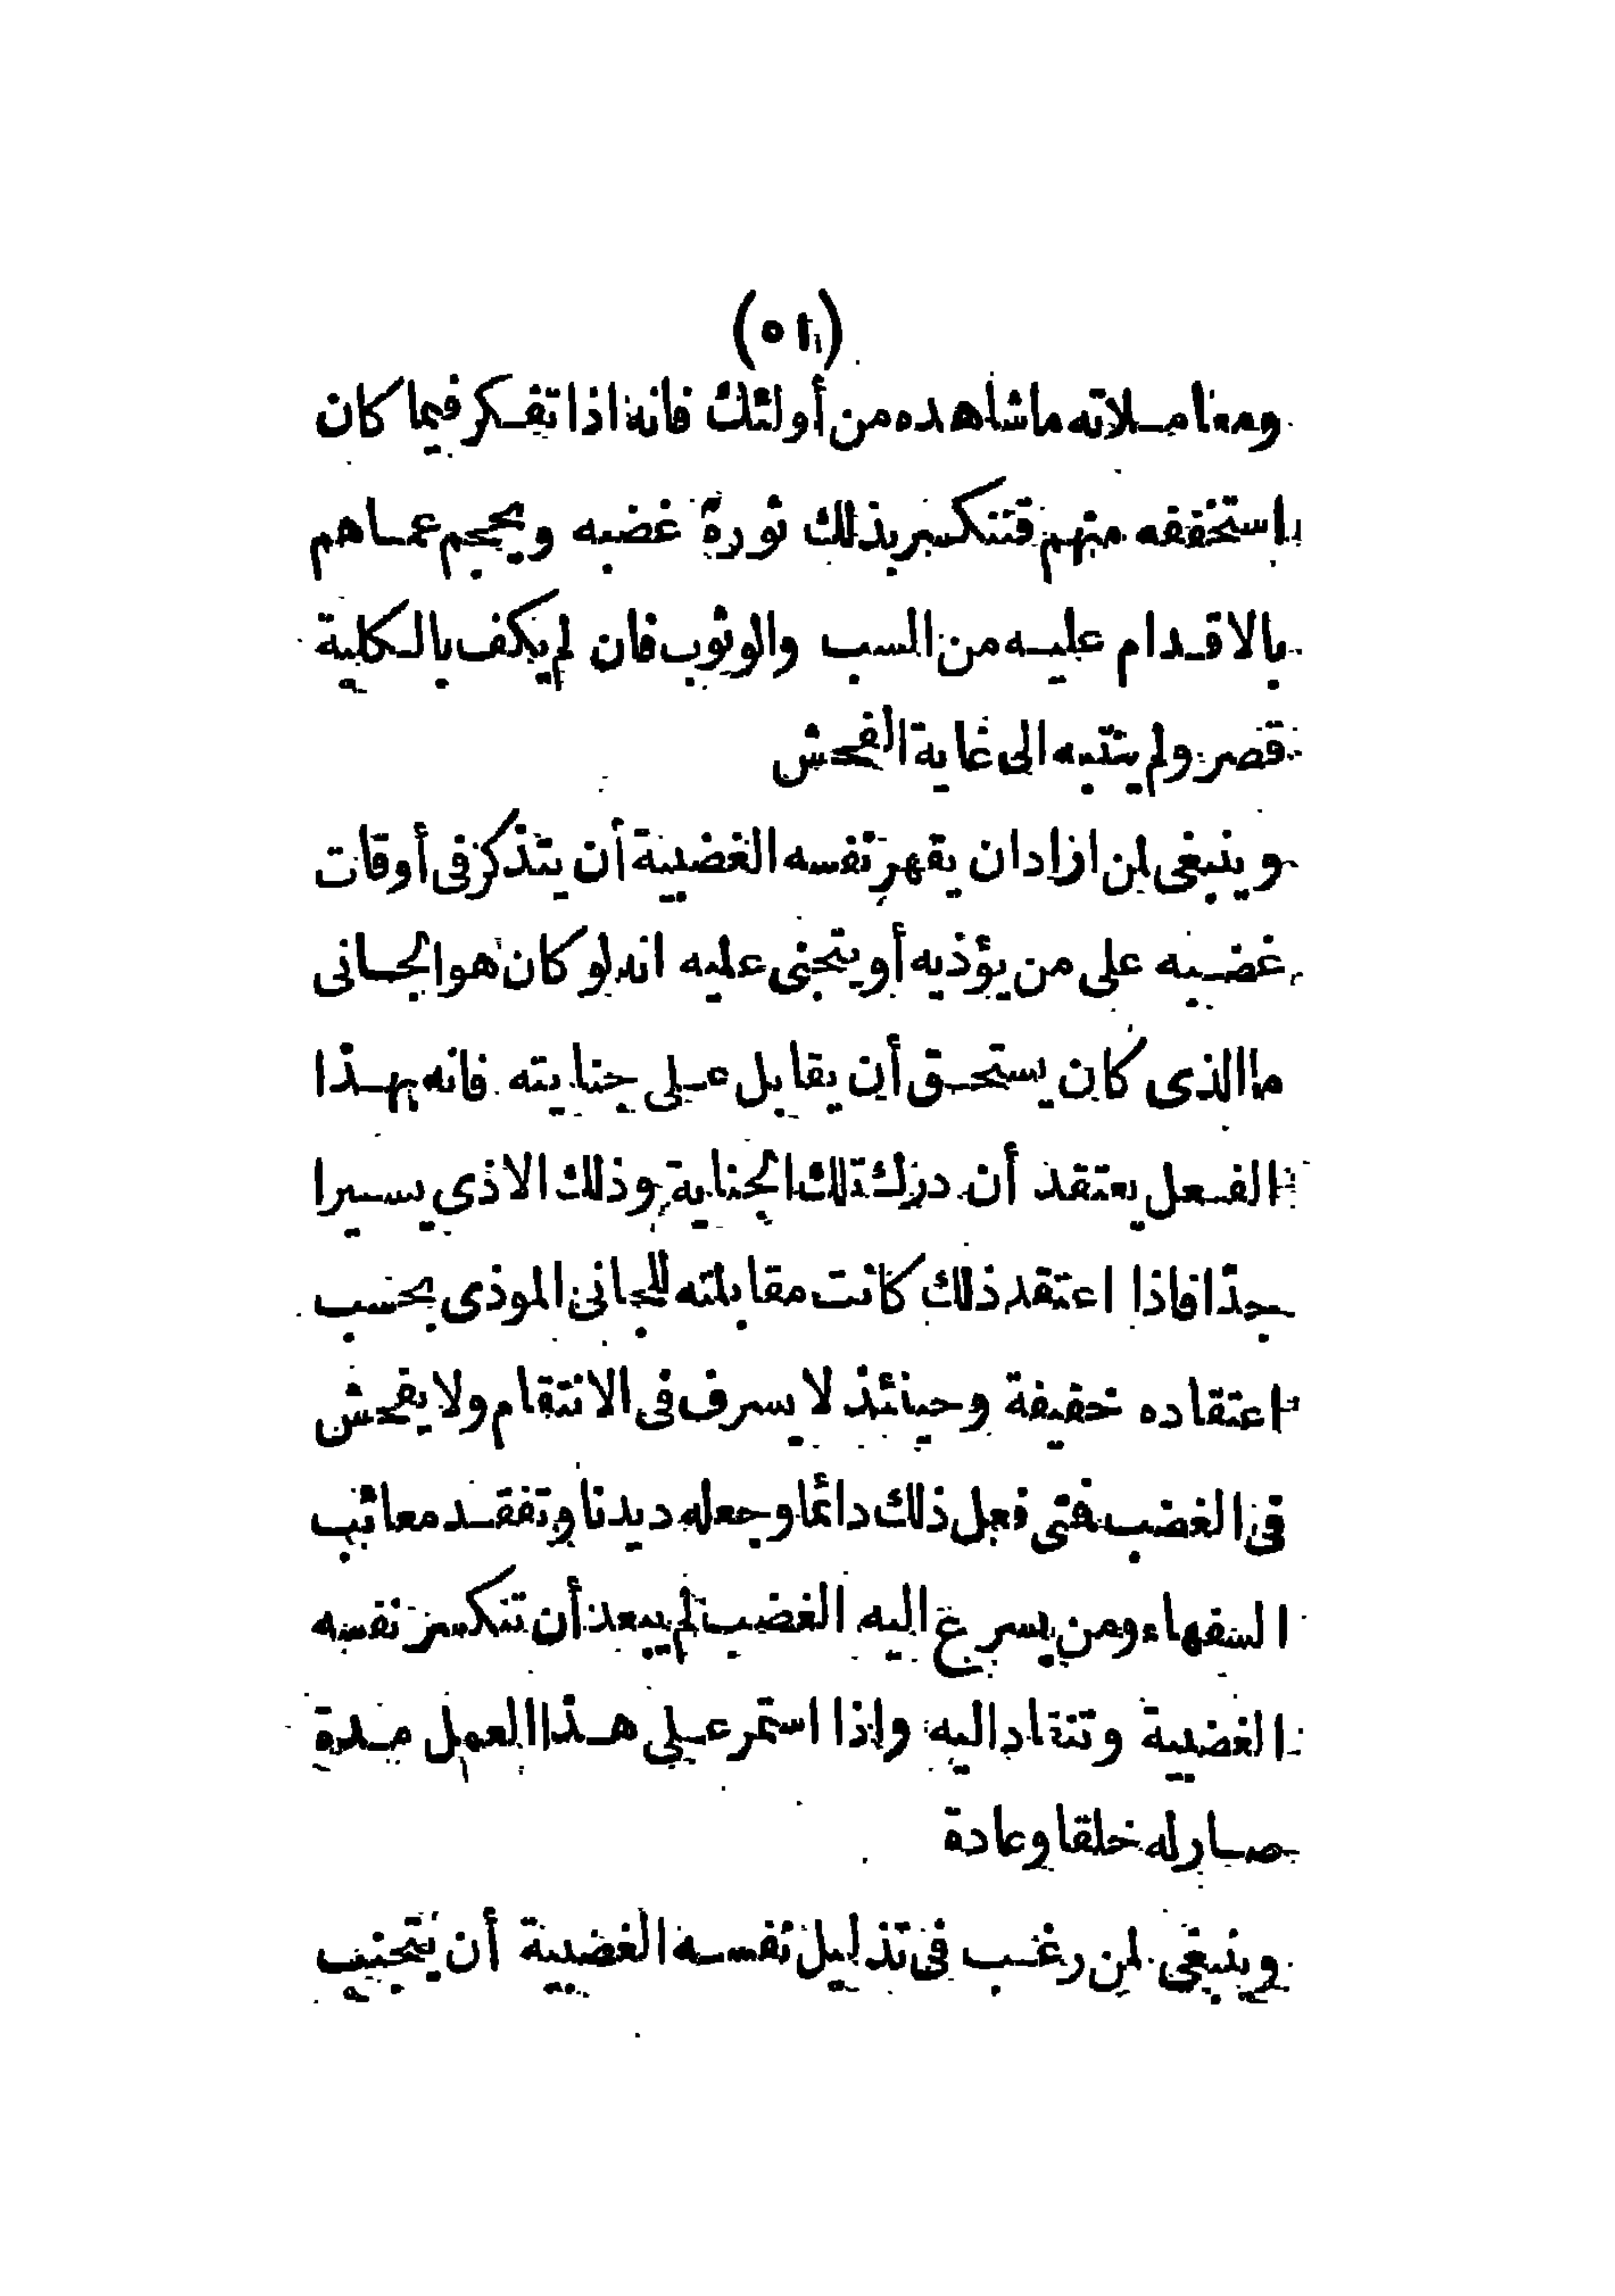 (٥١)
ومعاملاته ماشاهده من أولئك فانه اذا تفكر فيما كان
استخففه منهم فتنكسر بذلك ثورة غضبه ويحجم عما هم
بالاقدام عليه من السب والوثوب فان لم يكف بالكلية
قصر ولم ينتبه الى غاية الفحش
وينبغى لمن ارادان يقهر نفسه الغضبية أن يتذكر فى أوقات
غضبه على من يؤذيه أو يتجنى عليه انه لو كان هو الجانى
ما الذى كان يستحق أن يقابل على جنايته فانه بهذا
الفعل يعتقد أن درك تلك الجناية وذلك الاذى يسيرا
جدّا فاذا اعتقد ذلك كانت مقابلته للجانى الموذى بحسب
اعتقاده خفيفة وحينئذ لا يسرف فى الانتقام ولا يفحش
فى الغضب فتى فعل ذلك دائما وجعله ديدنا وتفقد معائب
السفهاء ومن يسرع اليه الغضب لم يبعد أن تنكسر نفسه
الغضبية وتنقاد اليه واذا استمر على هذا العمل مدة
صار له خلقا وعادة
وينبغى لمن رغب فى تذليل نفسه الغضبية أن يتجنب